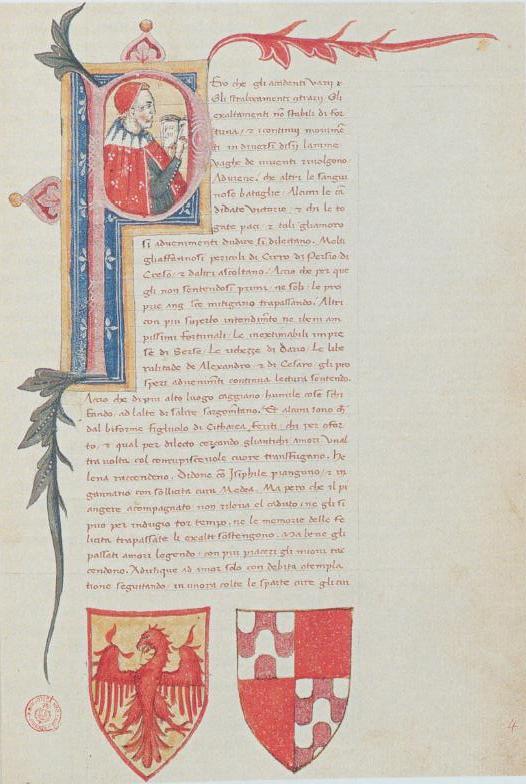 Pero che gli accidenti varii &
Gli stralciamenti ɔtrarii. Gli
exaltamenti nō stabili di for
tuna / & continui movimē
ti in diversi disij lanime
vaghe de viventi rivolgono
Adviene. che altri le sangui
nose bataglie. Alcun le cā
didate victorie. & chi le to
gate paci. & tali gliamoro
si advenimenti dudire si dilectano. Molti
gliaffannosi pericoli di Cirro di Perseo di
Creso. & daltri ascoltano. Accio che per que
gli non sentendosi primi. ne soli. le pro
prie ang sce mitigano trapassando. Altri
con piu superbo intendimēto
La inextimabili impre
se di Serse. Le richeze di Dario. Le libe
ralitade de Alexandro. & di Cesare. gli pro
speri advenimēti continua lectura sentendo.
Accio che di piu alto luogo caggiano humile cose schi
fando. ad lalte di salire sargomētano. Et alcuni sono ch̄
dal biforme figliuolo di Citharea feriti. chi per cōfor
to. & qual per dilecto cercando gliantichi amori Unal
tra volta col concupiscevole cuore transfugano. He
lena raccendeno. Didone cō Isiphile piangono. & in
gannano con sollicita cura Medea. Ma pero che il pi
angere acompagnato non rileva el caduto. ne gli si
puo per indugio tor tempo. ne le memorie delle fe
licita trapassate li exalti sostengono. Ma bene gli
passati amori legendo. con piu piaceri gli nuovi rac
cendono. Adunque ad amor solo con debita ɔtempla
tione seguitando. in unora colte le sparte cure gli cui